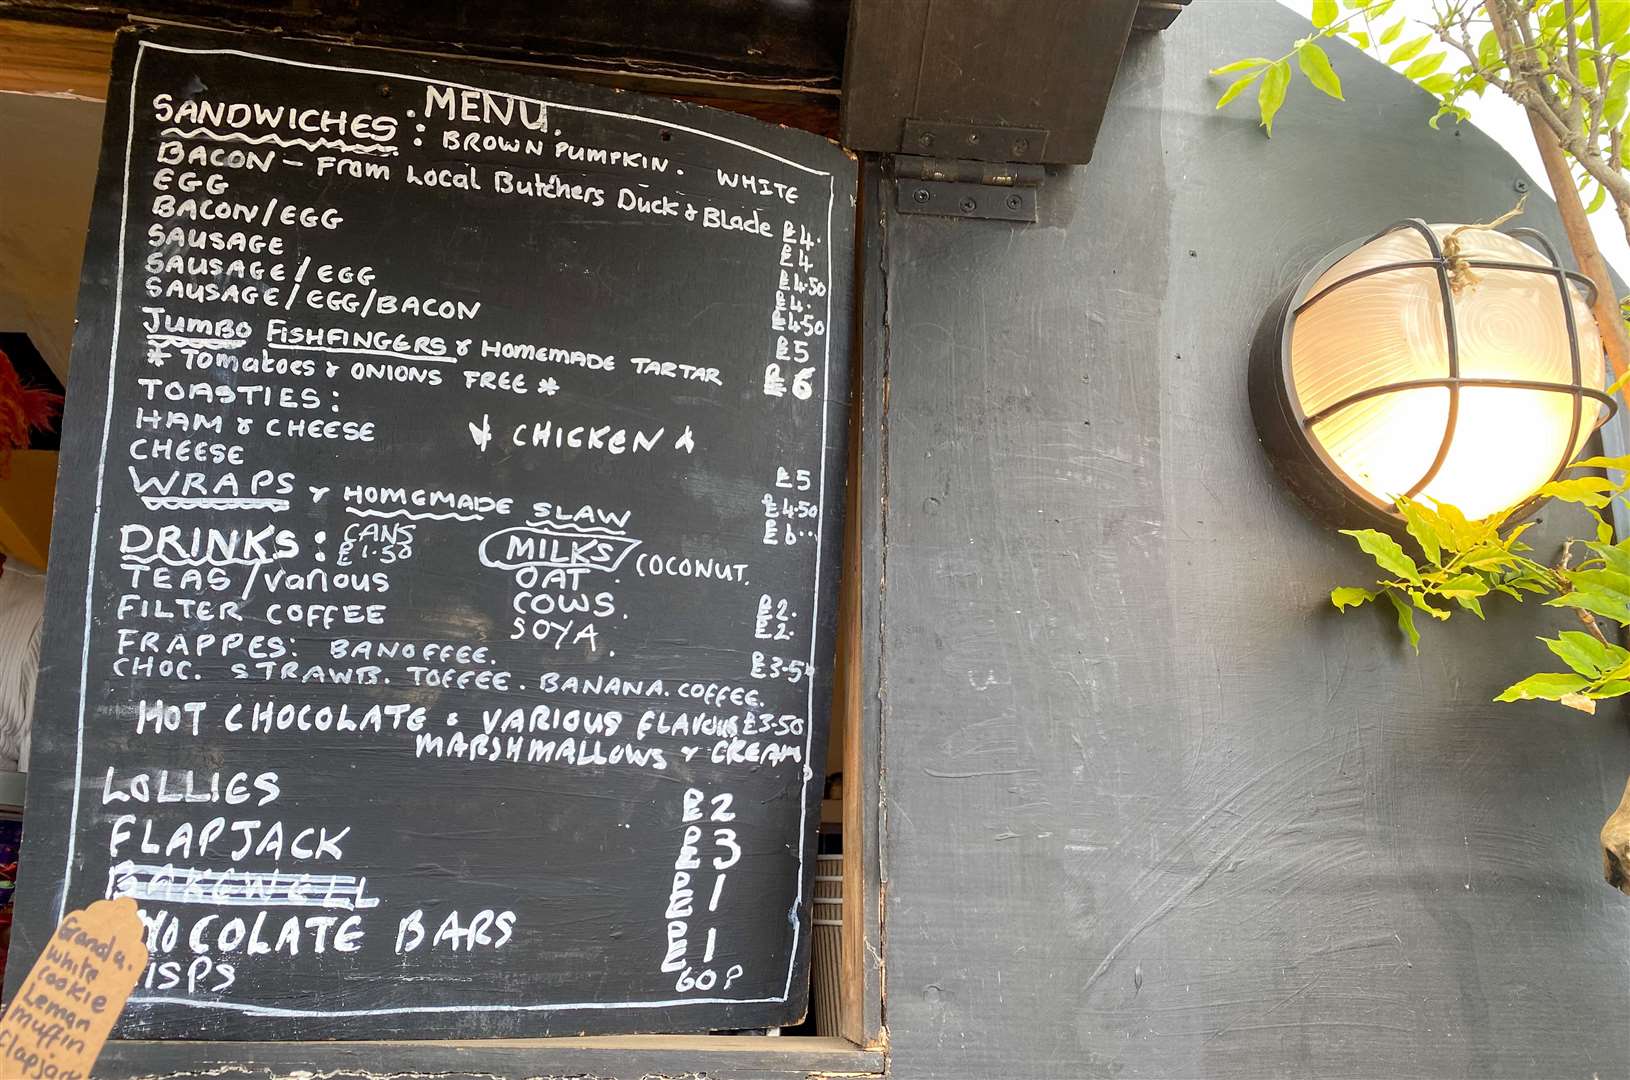 .MENU.
SANDWICHES : BROWN PUMPKIN. WHITE
BACON - From Local Butchers Duck & Blade £4.
EGG £4
BACON/EGG £4.50
SAUSAGE £4.
SAUSAGE/EGG £4.50
SAUSAGE/EGG/BACON £5
JUMBO FISHFINGERS & HOMEMADE TARTAR £6
* Tomatoes & ONIONS FREE *
TOASTIES:
HAM & CHEESE * CHICKEN * £5
CHEESE £4.50
WRAPS & HOMEMADE SLAW £6..
DRINKS : CANS £1.50 MILKS COCONUT.
TEAS/various OAT. £2.
FILTER COFFEE COWS. £2.
SOYA.
FRAPPES: BANOFFEE. £3.50
CHOC. STRAWB. TOFFEE. BANANA. COFFEE.
HOT CHOCOLATE : VARIOUS FLAVOURS £3.50
MARSHMALLOWS & CREAM
LOLLIES £2
FLAPJACK £3
BAKEWELL £1
HOCOLATE BARS £1
ISPS 60P
white
cookie
Leman
muffin
flapjack